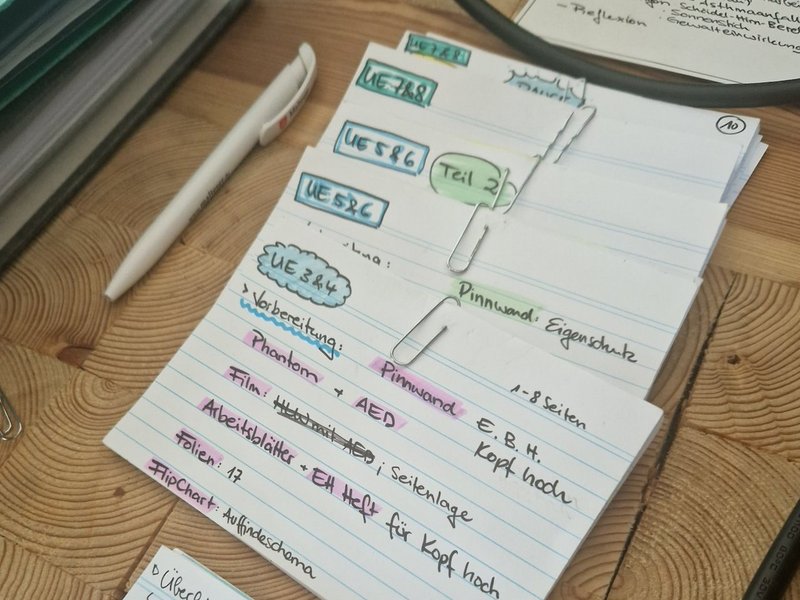 - Reflexion
Sonnenstich
Gewalteinwirkung
UE 7&8
UE 7&8
10
UE 5&6
Teil 2
UE 5&6
Pinnwand: Eigenschutz
UE 3&4
> Vorbereitung:
1-8 Seiten
Phantom Pinnwand E.B.H.
+ AED Kopf hoch
Film: mit AED; Seitenlage
Arbeitsblätter + EH Heft für Kopf hoch
Folien: 17
FlipChart: Auffindeschema